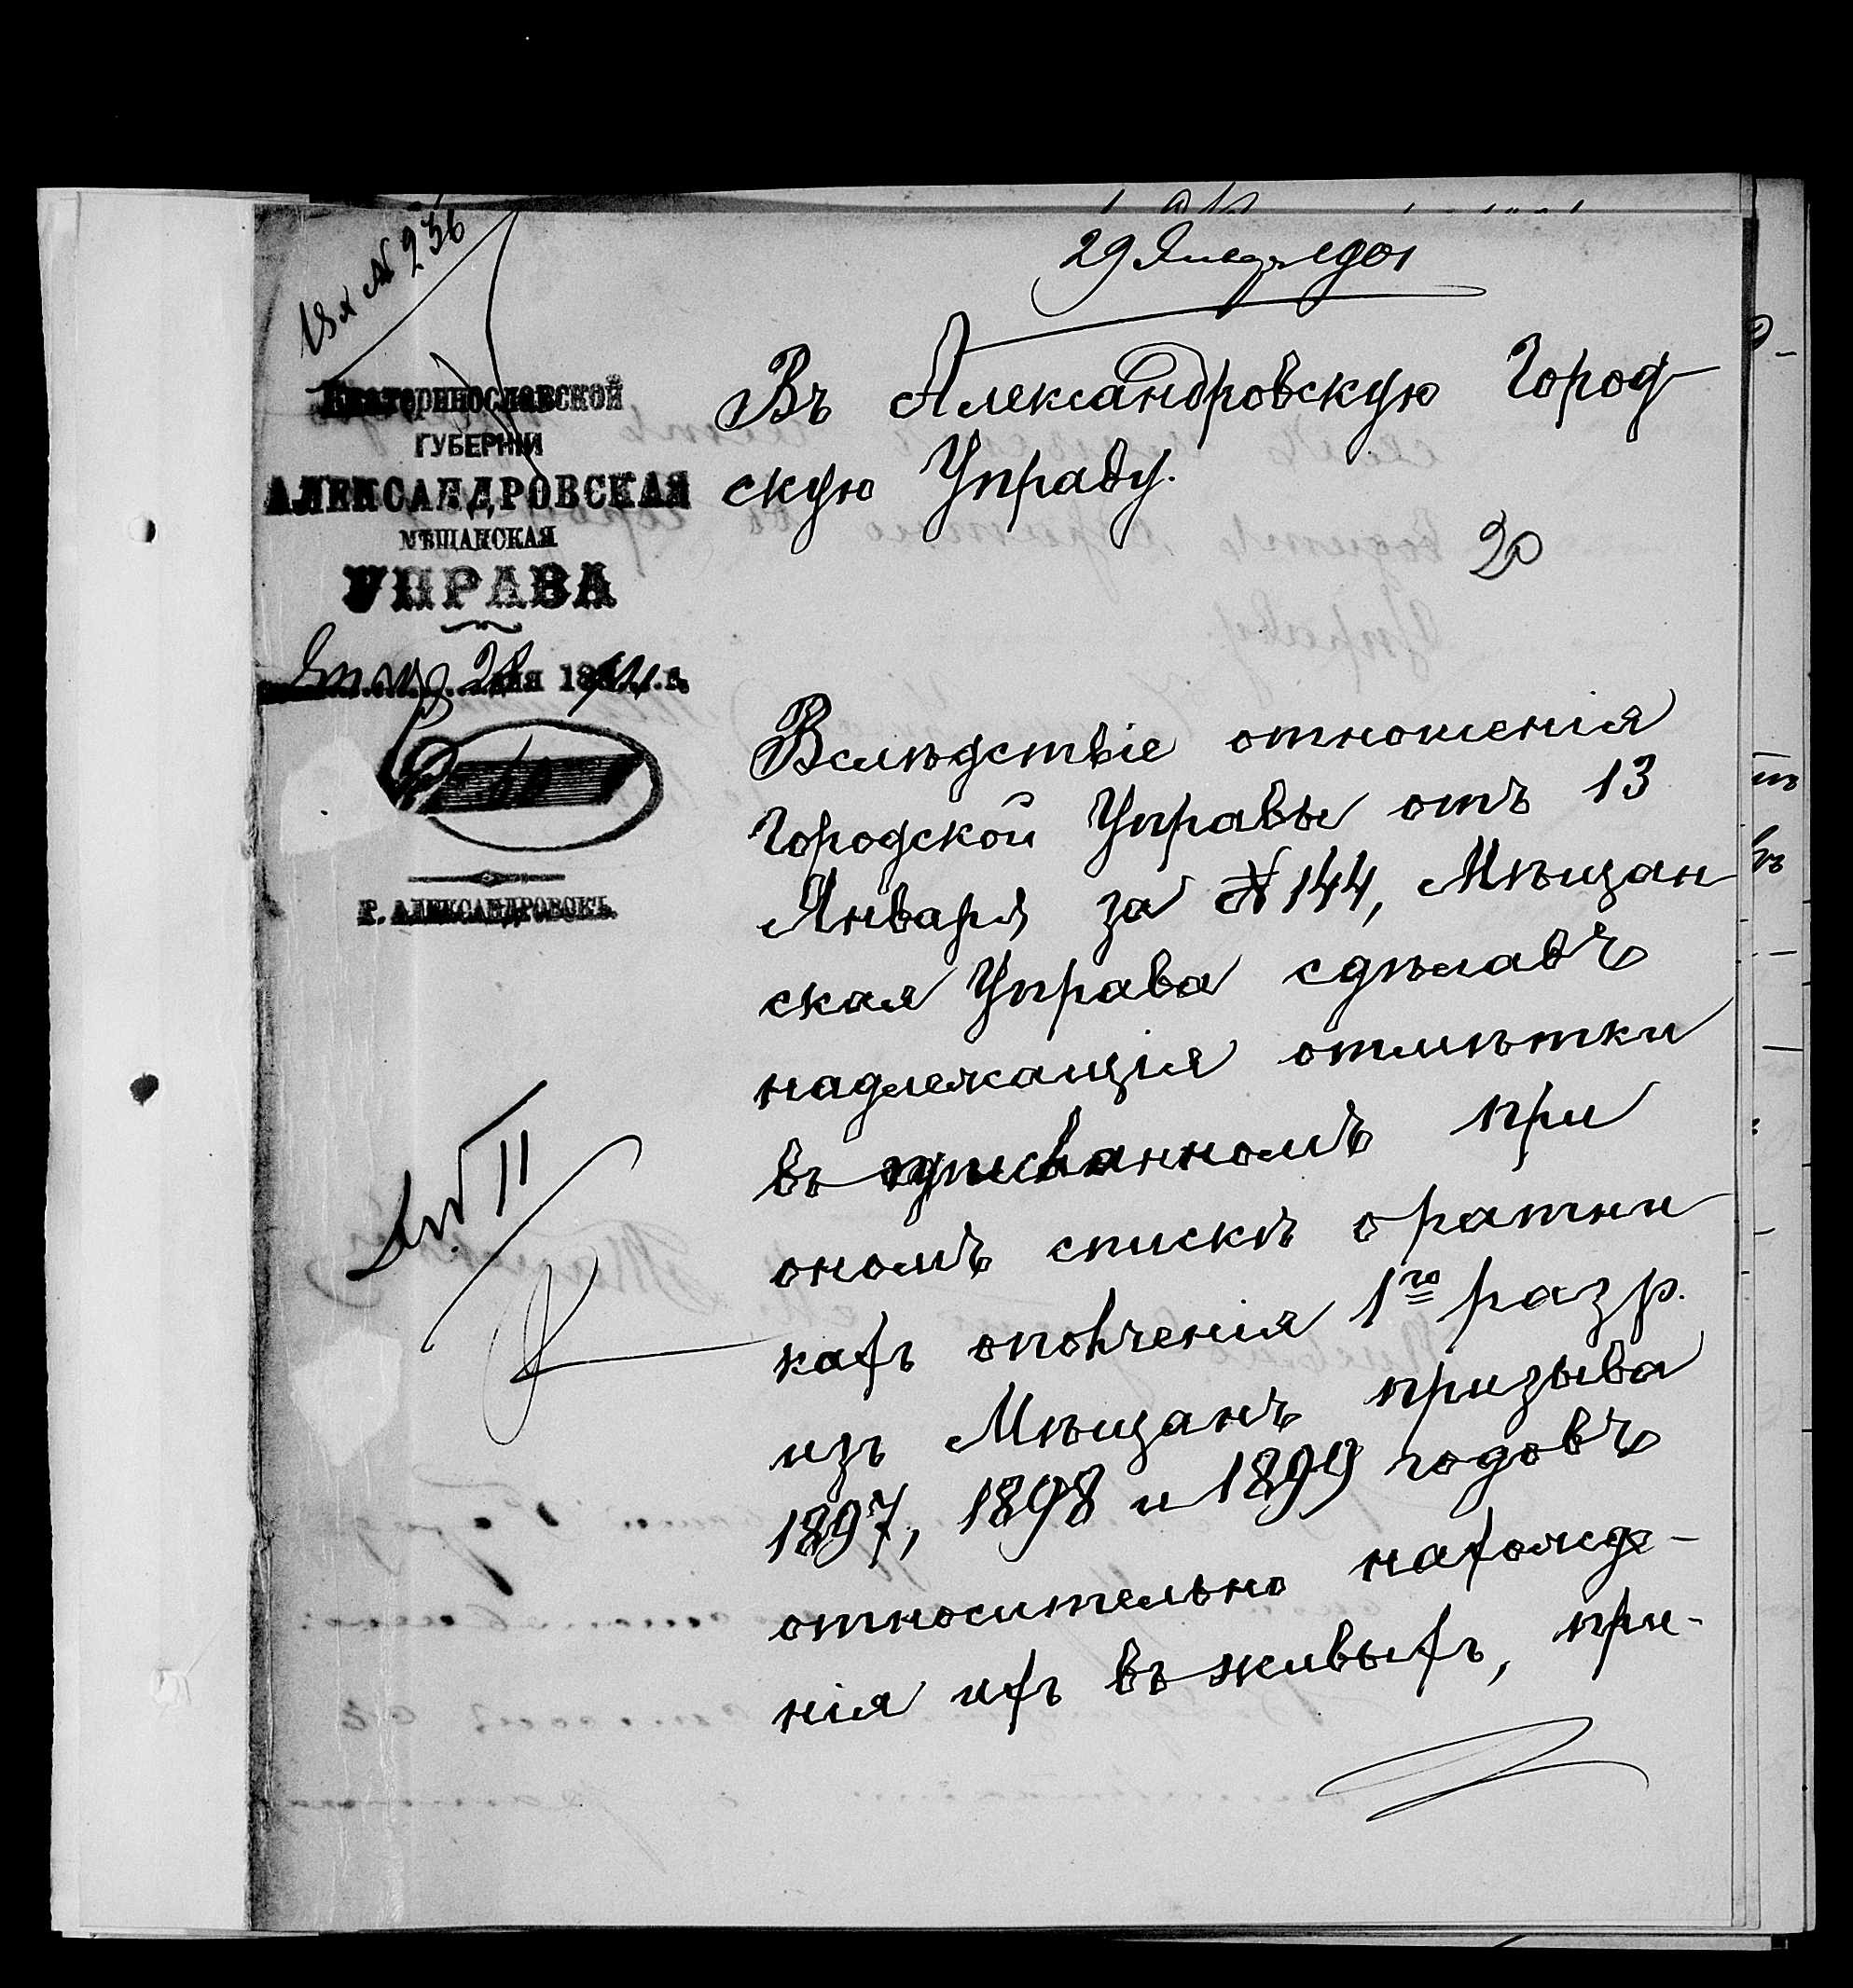 Вх № 236
29 Января 1901
ЕКАТЕРИНОСЛАВСКОЙ
ГУБЕРНІИ
АЛЕКСАНДРОВСКАЯ
МѢЩАНСКАЯ
УПРАВА
Января 28 дня 1901 г.
Г. АЛЕКСАНДРОВСКЪ.
Въ Александровскую Город
скую Управу.
20
Вслѣдствіе отношенія
Городской Управы отъ 13
Января за № 144, Мѣщан
ская Управа сдѣлавъ
надлежащія отмѣтки
въ при
ономъ спискѣ о ратни
кахъ ополченія 1го разр.
изъ Мѣщанъ призыва
1897, 1898 и 1899 годовъ
относительно нахожде-
нія ихъ въ живыхъ, при-